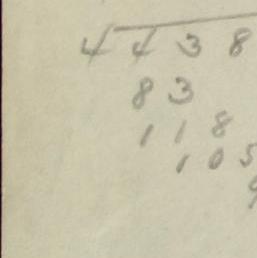 4 4 3 8
8 3
1 1 8
1 0 5
9